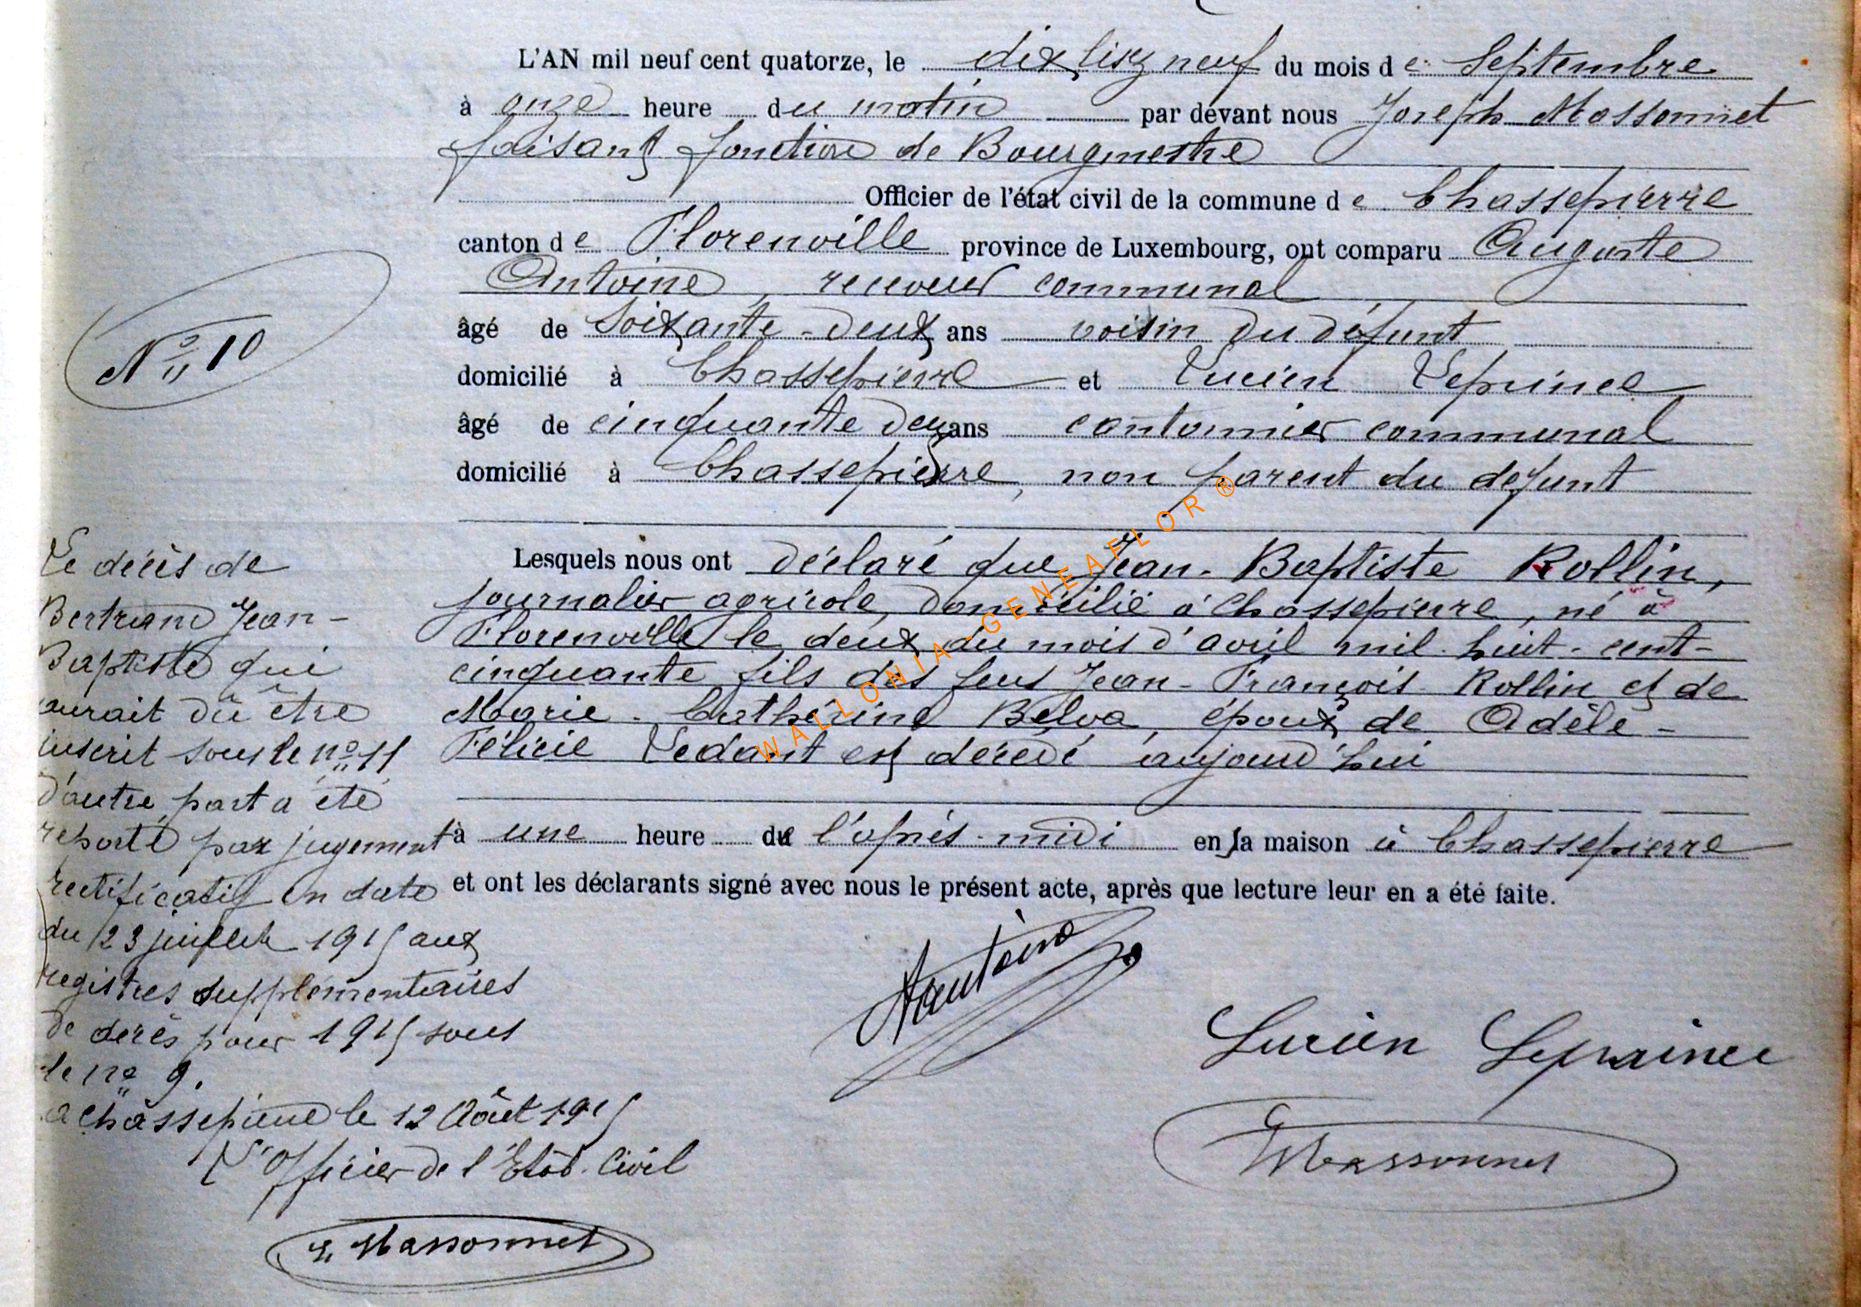 L'AN mil neuf cent quatorze, le dix neuf du mois de Septembre
à onze heure du matin par devant nous Joseph Massonnet
faisant fonction de Bourgmestre
Officier de l'état civil de la commune de Chassepierre
canton de Florenville province de Luxembourg, ont comparu Auguste
Antoine, receveur communal
âgé de Soixante-deux ans voisin du défunt
domicilié à Chassepierre et Lucien Leprince
âgé de cinquante deux ans cantonnier communal
domicilié à Chassepierre, non parent du defunt
Lesquels nous ont déclaré que Jean-Baptiste Rollin,
journalier agricole, domicilié à Chassepierre, né à
Florenville le deux du mois d'avril mil-huit-cent-
cinquante fils des feus Jean-François Rollin et de
Marie-Catherine Belva, époux de Adèle-
Félicie Ledant est décédé aujourd'hui
à une heure de l'après-midi en sa maison à Chassepierre
et ont les déclarants signé avec nous le présent acte, après que lecture leur en a été faite.
Aantoine
Lucien Leprince
Massonnet
N° 10
Le décès de
Bertrand Jean-
Baptiste qui
aurait dû être
inscrit sous le n° 11
d'autre part a été
reporté par jugement
rectificatif en date
du 23 juillet 1915 aux
registres supplémentaires
de décès pour 1915 sous
le n° 9.
a Chassepierre le 12 Août 1915
L'Officier de l'Etat-Civil
Massonnet
WALLONIA-GENEAFLOR ®